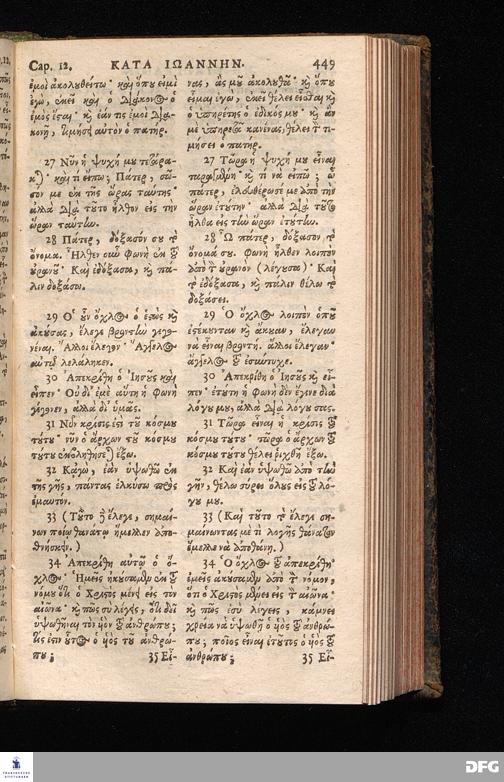 Cap. 12. ΚΑΤΑ ΙΩΑΝΝΗΝ. 449
ἐμοὶ ἀκολουθείτω· καὶ ὅπου εἰμὶ
ἐγὼ, ἐκεῖ καὶ ὁ διάκονος ὁ
ἐμὸς ἔσται· καὶ ἐάν τις ἐμοὶ δια-
κονῇ, τιμήσει αὐτὸν ὁ πατήρ.
27 Νῦν ἡ ψυχή μου τετάρα-
κται· καὶ τί εἴπω; Πάτερ, σῶ-
σόν με ἐκ τῆς ὥρας ταύτης·
ἀλλὰ διὰ τοῦτο ἦλθον εἰς τὴν
ὥραν ταύτην.
28 Πάτερ, δόξασόν σου τὸ
ὄνομα. Ἦλθεν οὖν φωνὴ ἐκ τοῦ
οὐρανοῦ· Καὶ ἐδόξασα, καὶ πά-
λιν δοξάσω.
29 Ὁ οὖν ὄχλος ὁ ἑστὼς καὶ
ἀκούσας, ἔλεγε βροντὴν γεγο-
νέναι. Ἄλλοι ἔλεγον· Ἄγγελος
αὐτῷ λελάληκεν.
30 Ἀπεκρίθη ὁ Ἰησοῦς καὶ
εἶπεν· Οὐ δι' ἐμὲ αὕτη ἡ φωνὴ
γέγονεν, ἀλλὰ δι' ὑμᾶς.
31 Νῦν κρίσις ἐστὶ τοῦ κόσμου
τούτου· νῦν ὁ ἄρχων τοῦ κόσμου
τούτου ἐκβληθήσεται ἔξω.
32 Κἀγὼ, ἐὰν ὑψωθῶ ἐκ
τῆς γῆς, πάντας ἑλκύσω πρὸς
ἐμαυτόν.
33 (Τοῦτο δὲ ἔλεγε, σημαί-
νων ποίῳ θανάτῳ ἤμελλεν ἀπο-
θνήσκειν.)
34 Ἀπεκρίθη αὐτῷ ὁ ὄ-
χλος· Ἡμεῖς ἠκούσαμεν ἐκ τοῦ
νόμου ὅτι ὁ Χριστὸς μένει εἰς τὸν
αἰῶνα· καὶ πῶς σὺ λέγεις, ὅτι δεῖ
ὑψωθῆναι τὸν υἱὸν τοῦ ἀνθρώπου;
τίς ἐστιν οὗτος ὁ υἱὸς τοῦ ἀνθρώ-
που;
35 Εἶ-
νας, ἂς μοῦ ἀκολουθᾷ· καὶ ὅπου
εἶμαι ἐγὼ, ἐκεῖ θέλει εἶσθαι καὶ
ὁ ὑπηρέτης ὁ ἐδικός μου· καὶ ἂν
μὲ ὑπηρετᾷ κανένας, θέλει τὸν τι-
μήσει ὁ πατήρ.
27 Τώρα ἡ ψυχή μου εἶναι
ταραγμένη· καὶ τί νὰ εἰπῶ; ὦ
πάτερ, ἐλευθέρωσέ με ἀπὸ τὴν
ὥραν ἐτούτην· ἀλλὰ διὰ τοῦτο
ἦλθα εἰς τὴν ὥραν ἐτούτην.
28 Ὦ πάτερ, δόξασον τὸ
ὄνομά σου. Φωνὴ ἦλθεν λοιπὸν
ἀπὸ τὸν οὐρανὸν (λέγουσα)· Καὶ
τὸ ἐδόξασα, καὶ πάλιν θέλω τὸ
δοξάσει.
29 Ὁ ὄχλος λοιπὸν ὁποῦ
ἐστέκονταν καὶ ἄκουαν, ἔλεγαν
νὰ εἶναι βροντή. ἄλλοι ἔλεγαν·
ἄγγελος τοῦ ἐσυντυχε.
30 Ἀπεκρίθη ὁ Ἰησοῦς καὶ εἶ-
πεν· ἐτούτη ἡ φωνὴ δὲν ἔγινε διὰ
λόγου μου, ἀλλὰ διὰ λόγου σας.
31 Τώρα εἶναι ἡ κρίσις τοῦ
κόσμου τούτου· τώρα ὁ ἄρχων τοῦ
κόσμου τούτου θέλει ῥιχθῆ ἔξω.
32 Καὶ ἐὰν ὑψωθῶ ἀπὸ τὴν
γῆν, θέλω σύρει ὅλους εἰς τοῦ λό-
γου μου.
33 (Καὶ τοῦτο τὸ ἔλεγε ση-
μαίνωντας μὲ τί λογῆς θάνατον
ἔμελλε νὰ ἀποθάνῃ.)
34 Ὁ ὄχλος τοῦ ἀπεκρίθη·
ἐμεῖς ἀκούσαμεν ἀπὸ τὸν νόμον,
ὅτι ὁ Χριστὸς μένει εἰς τὸν αἰῶνα·
καὶ πῶς ἐσὺ λέγεις, κάμνει
χρεία νὰ ὑψωθῇ ὁ υἱὸς τοῦ ἀνθρώ-
που; ποῖος εἶναι ἐτοῦτος ὁ υἱὸς τοῦ
ἀνθρώπου;
35 Εἶ-
FRANCKESCHE STIFTUNGEN
DFG